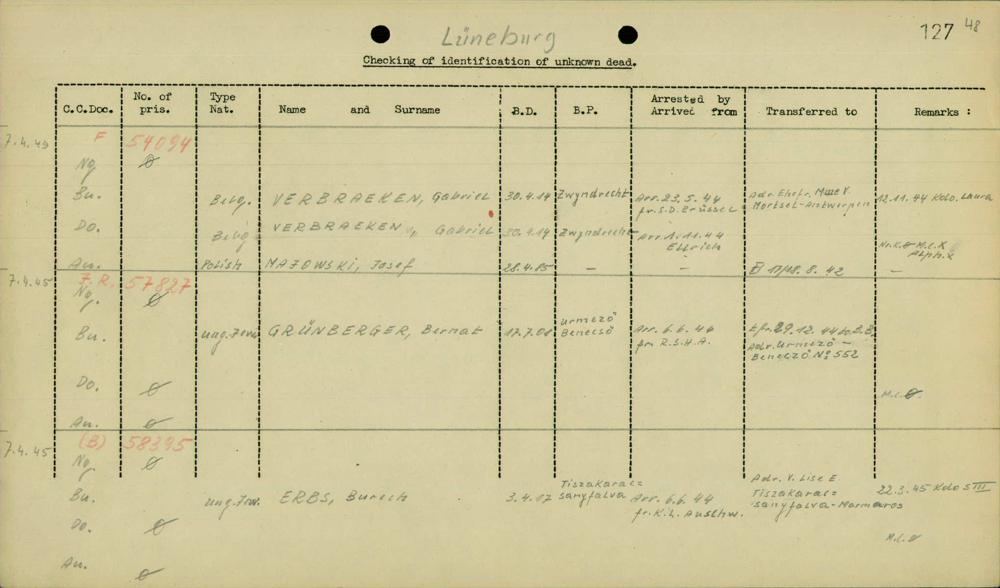 Lüneburg
127 48
Checking of identification of unknown dead.
C.C.Doc. No. of pris. Type Nat. Name and Surname B.D. B.P. Arrested by Arrived from Transferred to Remarks :
7.4.45 F 54094
Ng. Ø
Bu. Belg. VERBRAEKEN, Gabriel 30.4.14 Zwyndrecht Arr. 23.5.44 fr. S.D. Brüssel Adr. Ehefr. Mme V. Mortsel-Antwerpen 12.11.44 Kdo. Laura
Do. Belg. VERBRAEKEN, Gabriel 30.4.14 Zwyndrecht Arr. 1.11.44 Ellrich
M.C.X Alph.X
Au. Polish MAJOWSKI, Josef 28.4.85 – – 8.42 –
7.4.45 F.R. 57827
Ng. Ø
Bu. ung. Jew. GRÜNBERGER, Bernat 17.7.01 Urmezö Benecsö Arr. 6.6.44 fr. R.S.H.A. 29.12.44 to B.B. Adr. Urmezö – Beneczö № 552
Do. Ø M.C.Ø
Au. Ø
7.4.45 (B) 58395
Ng. Ø
Bu. ung. Jew. ERBS, Burech 3.4.17 Tiszakaracs= sanyfalva Arr. 6.6.44 fr. K.L. Auschw. Adr. V. Lise E. Tiszakaracs= sanyfalva-Marmaros 22.3.45 Kdo SIII
Do. Ø M.C.Ø
Au. Ø